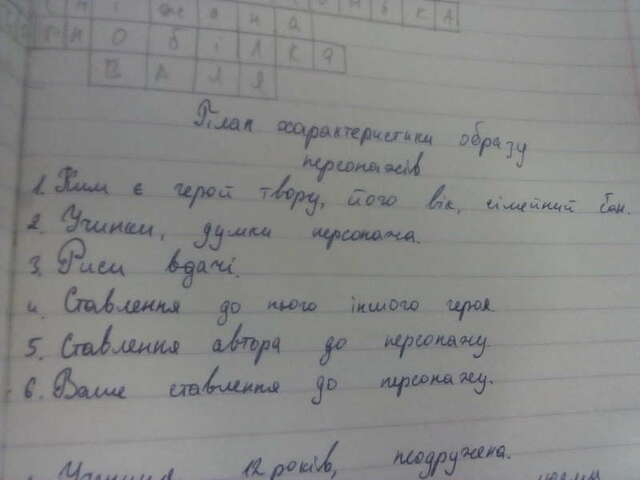 сніжана
білка
ВАЛЯ
План характеристики образу
персонажів
1. Ким є герой твору, його вік, сімейний стан.
2. Учинки, думки персонажа.
3. Риси вдачі.
4. Ставлення до нього іншого героя
5. Ставлення автора до персонажу
6. Ваше ставлення до персонажу.
12 років, неодружена.